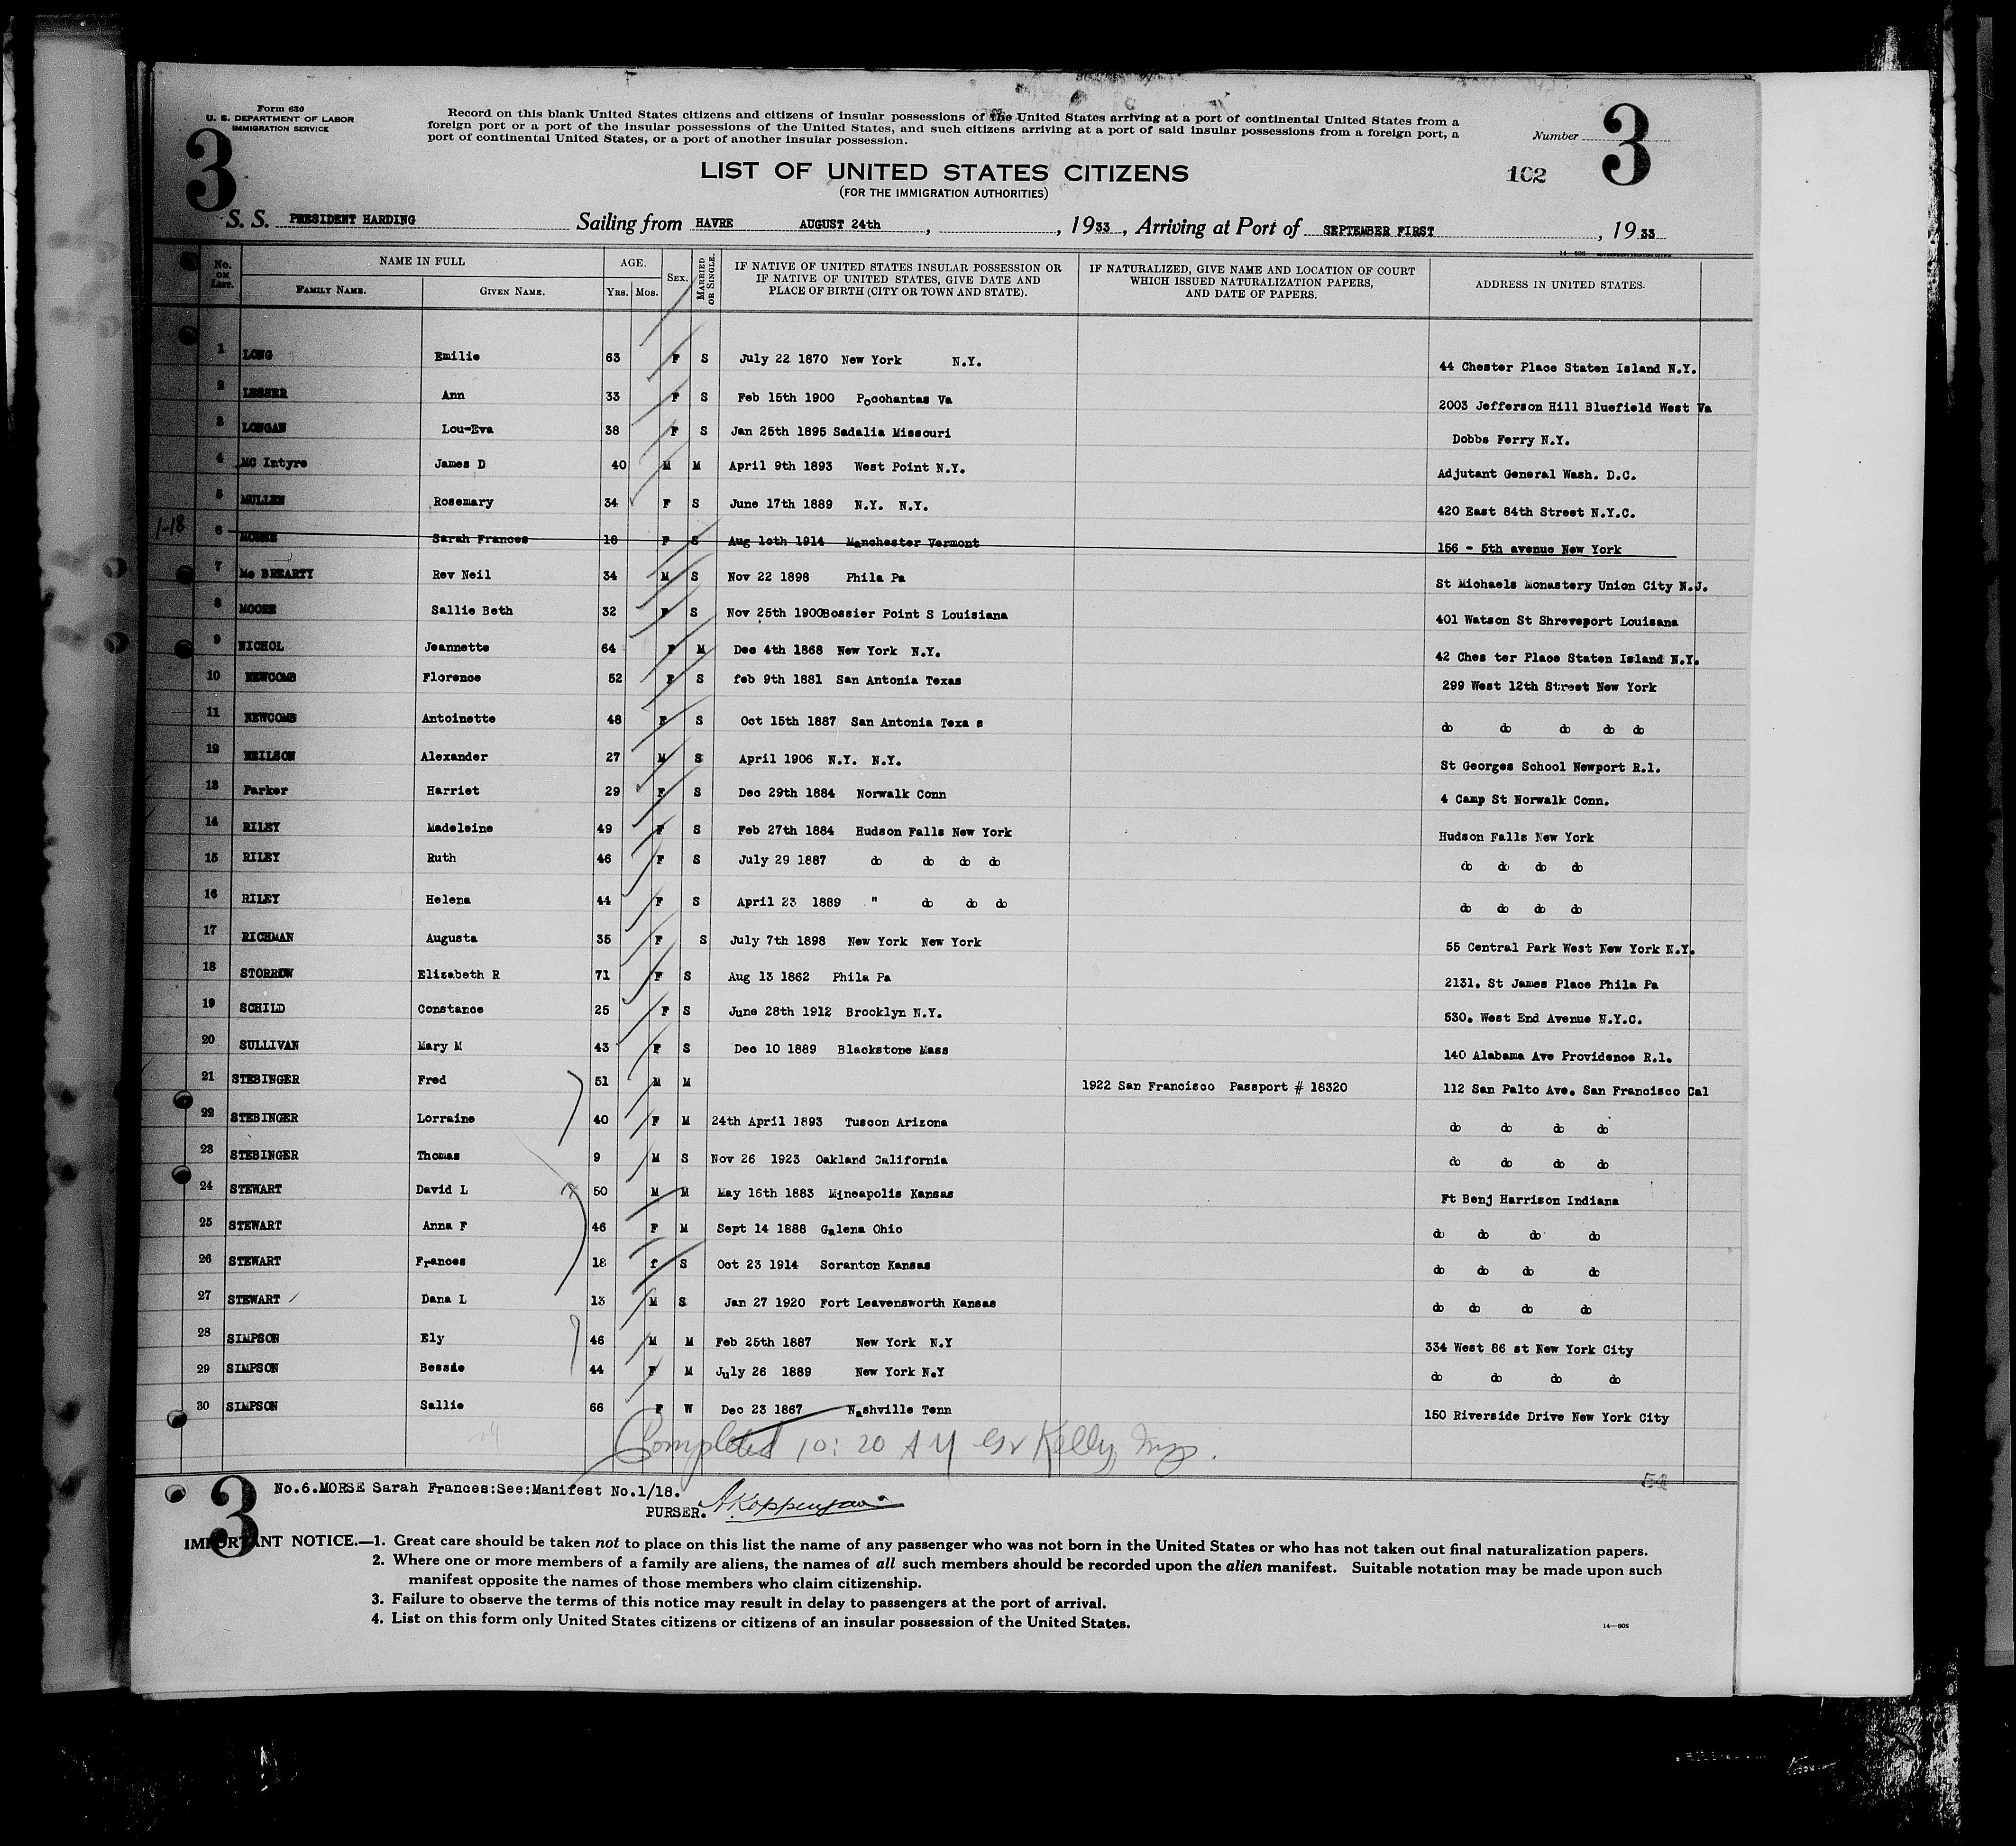 Form 630
U. S. DEPARTMENT OF LABOR
IMMIGRATION SERVICE
3
Record on this blank United States citizens and citizens of insular possessions of the United States arriving at a port of continental United States from a
foreign port or a port of the insular possessions of the United States, and such citizens arriving at a port of said insular possessions from a foreign port, a
port of continental United States, or a port of another insular possession.
Number 3
LIST OF UNITED STATES CITIZENS
(FOR THE IMMIGRATION AUTHORITIES)
102
S. S. PRESIDENT HARDING Sailing from HAVRE AUGUST 24th , , 1933 , Arriving at Port of SEPTEMBER FIRST , 19 33
14—608
No. ON LIST. NAME IN FULL FAMILY NAME. GIVEN NAME. AGE. YRS. MOS. SEX. MARRIED OR SINGLE. IF NATIVE OF UNITED STATES INSULAR POSSESSION OR IF NATIVE OF UNITED STATES, GIVE DATE AND PLACE OF BIRTH (CITY OR TOWN AND STATE). IF NATURALIZED, GIVE NAME AND LOCATION OF COURT WHICH ISSUED NATURALIZATION PAPERS, AND DATE OF PAPERS. ADDRESS IN UNITED STATES.
1 LONG Emilie 63 F S July 22 1870 New York N.Y. 44 Chester Place Staten Island N.Y.
2 LESSER Ann 33 F S Feb 15th 1900 Pocohantas Va 2003 Jefferson Hill Bluefield West Va
3 LONGAN Lou-Eva 38 F S Jan 25th 1895 Sadalia Missouri Dobbs Ferry N.Y.
4 MC Intyre James D 40 M M April 9th 1893 West Point N.Y. Adjutant General Wash. D.C.
5 MULLEN Rosemary 34 F S June 17th 1889 N.Y. N.Y. 420 East 84th Street N.Y.C.
1-18 6 MORSE Sarah Frances 18 F S Aug 10th 1914 Manchester Vermont 156 - 5th avenue New York
7 Mc BREARTY Rev Neil 34 M S Nov 22 1898 Phila Pa St Michaels Monastery Union City N.J.
8 MOORE Sallie Beth 32 F S Nov 25th 1900Bossier Point S Louisiana 401 Watson St Shreveport Louisana
9 NICHOL Jeannette 64 F M Dec 4th 1868 New York N.Y. 42 Ches ter Place Staten Island N.Y.
10 NEWCOMB Florence 52 F S feb 9th 1881 San Antonia Texas 299 West 12th Street New York
11 NEWCOMB Antoinette 48 F S Oct 15th 1887 San Antonia Texa s do do do do do
12 NEILSON Alexander 27 M S April 1906 N.Y. N.Y. St Georges School Newport R.l.
13 Parker Harriet 29 F S Dec 29th 1884 Norwalk Conn 4 Camp St Norwalk Conn.
14 RILEY Madeleine 49 F S Feb 27th 1884 Hudson Falls New York Hudson Falls New York
15 RILEY Ruth 46 F S July 29 1887 do do do do do do do do
16 RILEY Helena 44 F S April 23 1889 " do do do do do do do
17 RICHMAN Augusta 35 F S July 7th 1898 New York New York 55 Central Park West New York N.Y.
18 STORROW Elizabeth R 71 F S Aug 13 1862 Phila Pa 2131. St James Place Phila Pa
19 SCHILD Constance 25 F S June 28th 1912 Brooklyn N.Y. 530. West End Avenue N.Y.C.
20 SULLIVAN Mary M 43 F S Dec 10 1889 Blackstone Mass 140 Alabama Ave Providence R.l.
21 STEBINGER Fred 51 M M 1922 San Francisco Passport # 18320 112 San Palto Ave. San Francisco Cal
22 STEBINGER Lorraine 40 F M 24th April 1893 Tuscon Arizona do do do do
23 STEBINGER Thomas 9 M S Nov 26 1923 Oakland California do do do do
24 STEWART David L 50 M M May 16th 1883 Mineapolis Kansas Ft Benj Harrison Indiana
25 STEWART Anna F 46 F M Sept 14 1888 Galena Ohio do do do do
26 STEWART Frances 18 f S Oct 23 1914 Scranton Kansas do do do do
27 STEWART Dana L 13 M S Jan 27 1920 Fort Leavensworth Kansas do do do do
28 SIMPSON Ely 46 M M Feb 25th 1887 New York N.Y 334 West 86 st New York City
29 SIMPSON Bessie 44 F M July 26 1889 New York N.Y do do do do
30 SIMPSON Sallie 66 F W Dec 23 1867 Nashville Tenn 150 Riverside Drive New York City
Completed 10:20 AM Kelly, Insp.
54
3
No.6.MORSE Sarah Frances:See:Manifest No.1/18.
PURSER.
IMPORTANT NOTICE.—1. Great care should be taken not to place on this list the name of any passenger who was not born in the United States or who has not taken out final naturalization papers.
2. Where one or more members of a family are aliens, the names of all such members should be recorded upon the alien manifest. Suitable notation may be made upon such
manifest opposite the names of those members who claim citizenship.
3. Failure to observe the terms of this notice may result in delay to passengers at the port of arrival.
4. List on this form only United States citizens or citizens of an insular possession of the United States.
14—608